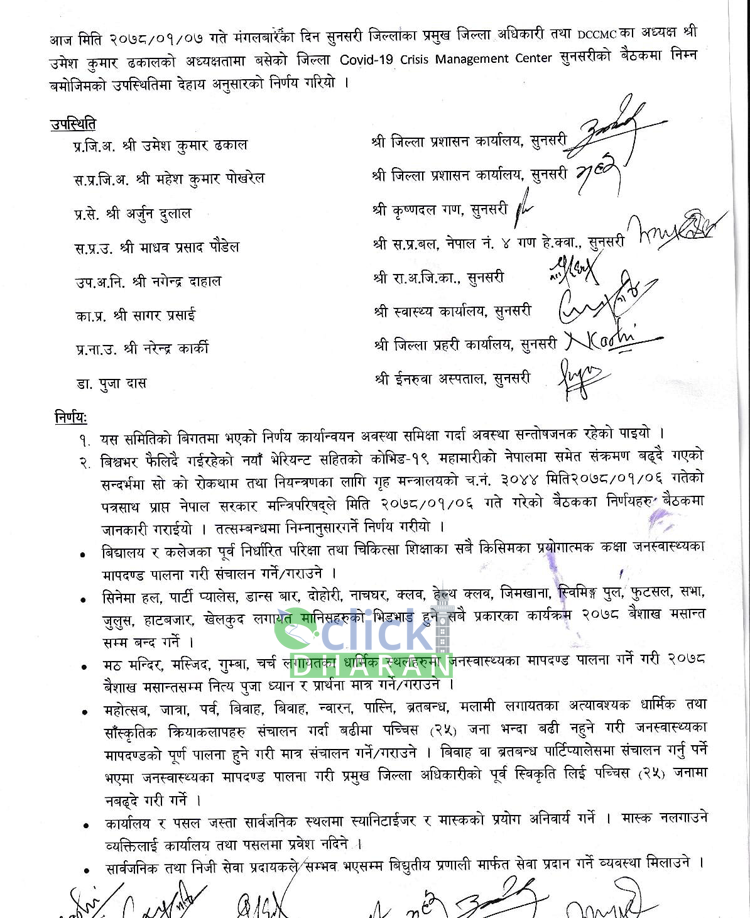 आज मिति २०७८/०१/०७ गते मंगलबारका दिन सुनसरी जिल्लाका प्रमुख जिल्ला अधिकारी तथा DCCMC का अध्यक्ष श्री
उमेश कुमार ढकालको अध्यक्षतामा बसेको जिल्ला Covid-19 Crisis Management Center सुनसरीको बैठकमा निम्न
बमोजिमको उपस्थितिमा देहाय अनुसारको निर्णय गरियो ।
उपस्थिति
प्र.जि.अ. श्री उमेश कुमार ढकाल श्री जिल्ला प्रशासन कार्यालय, सुनसरी
स.प्र.जि.अ. श्री महेश कुमार पोखरेल श्री जिल्ला प्रशासन कार्यालय, सुनसरी
प्र.से. श्री अर्जुन दुलाल श्री कृष्णदल गण, सुनसरी
स.प्र.उ. श्री माधव प्रसाद पौडेल श्री स.प्र.बल, नेपाल नं. ४ गण हे.क्वा., सुनसरी
उप.अ.नि. श्री नगेन्द्र दाहाल श्री रा.अ.जि.का., सुनसरी
का.प्र. श्री सागर प्रसाई श्री स्वास्थ्य कार्यालय, सुनसरी
प्र.ना.उ. श्री नरेन्द्र कार्की श्री जिल्ला प्रहरी कार्यालय, सुनसरी
डा. पुजा दास श्री ईनरुवा अस्पताल, सुनसरी
निर्णयः
१. यस समितिको बिगतमा भएको निर्णय कार्यान्वयन अवस्था समिक्षा गर्दा अवस्था सन्तोषजनक रहेको पाइयो ।
२. बिश्वभर फैलिदै गईरहेको नयाँ भेरियन्ट सहितको कोभिड-१९ महामारीको नेपालमा समेत संक्रमण बढ्दै गएको
सन्दर्भमा सो को रोकथाम तथा नियन्त्रणका लागि गृह मन्त्रालयको च.नं. ३०४४ मिति२०७८/०१/०६ गतेको
पत्रसाथ प्राप्त नेपाल सरकार मन्त्रिपरिषद्ले मिति २०७८/०१/०६ गते गरेको बैठकका निर्णयहरु बैठकमा
जानकारी गराईयो । तत्सम्बन्धमा निम्नानुसारगर्ने निर्णय गरीयो ।
• बिद्यालय र कलेजका पूर्व निर्धारित परिक्षा तथा चिकित्सा शिक्षाका सबै किसिमका प्रयोगात्मक कक्षा जनस्वास्थ्यका
मापदण्ड पालना गरी संचालन गर्ने/गराउने ।
• सिनेमा हल, पार्टी प्यालेस, डान्स बार, दोहोरी, नाचघर, क्लव, हेल्थ क्लव, जिमखाना, स्विमिङ्ग पुल, फुटसल, सभा,
जुलुस, हाटबजार, खेलकुद लगायत मानिसहरुको भिडभाड हुने सबै प्रकारका कार्यक्रम २०७८ बैशाख मसान्त
सम्म बन्द गर्ने ।
click
DHARAN
• मठ मन्दिर, मस्जिद, गुम्बा, चर्च लगायतका धार्मिक स्थलहरुमा जनस्वास्थ्यका मापदण्ड पालना गर्ने गरी २०७८
बैशाख मसान्तसम्म नित्य पुजा ध्यान र प्रार्थना मात्र गर्ने/गराउने ।
• महोत्सब, जात्रा, पर्व, बिवाह, बिवाह, न्वारन, पास्नि, ब्रतबन्ध, मलामी लगायतका अत्यावश्यक धार्मिक तथा
साँस्कृतिक क्रियाकलापहरु संचालन गर्दा बढीमा पच्चिस (२५) जना भन्दा बढी नहुने गरी जनस्वास्थ्यका
मापदण्डको पूर्ण पालना हुने गरी मात्र संचालन गर्ने/गराउने । बिवाह वा ब्रतबन्ध पार्टिप्यालेसमा संचालन गर्नु पर्ने
भएमा जनस्वास्थ्यका मापदण्ड पालना गरी प्रमुख जिल्ला अधिकारीको पूर्व स्विकृति लिई पच्चिस (२५) जनामा
नबढ्दे गरी गर्ने ।
• कार्यालय र पसल जस्ता सार्वजनिक स्थलमा स्यानिटाईजर र मास्कको प्रयोग अनिवार्य गर्ने । मास्क नलगाउने
व्यक्तिलाई कार्यालय तथा पसलमा प्रवेश नदिने ।
• सार्वजनिक तथा निजी सेवा प्रदायकले सम्भव भएसम्म बिद्युतीय प्रणाली मार्फत सेवा प्रदान गर्ने व्यवस्था मिलाउने ।